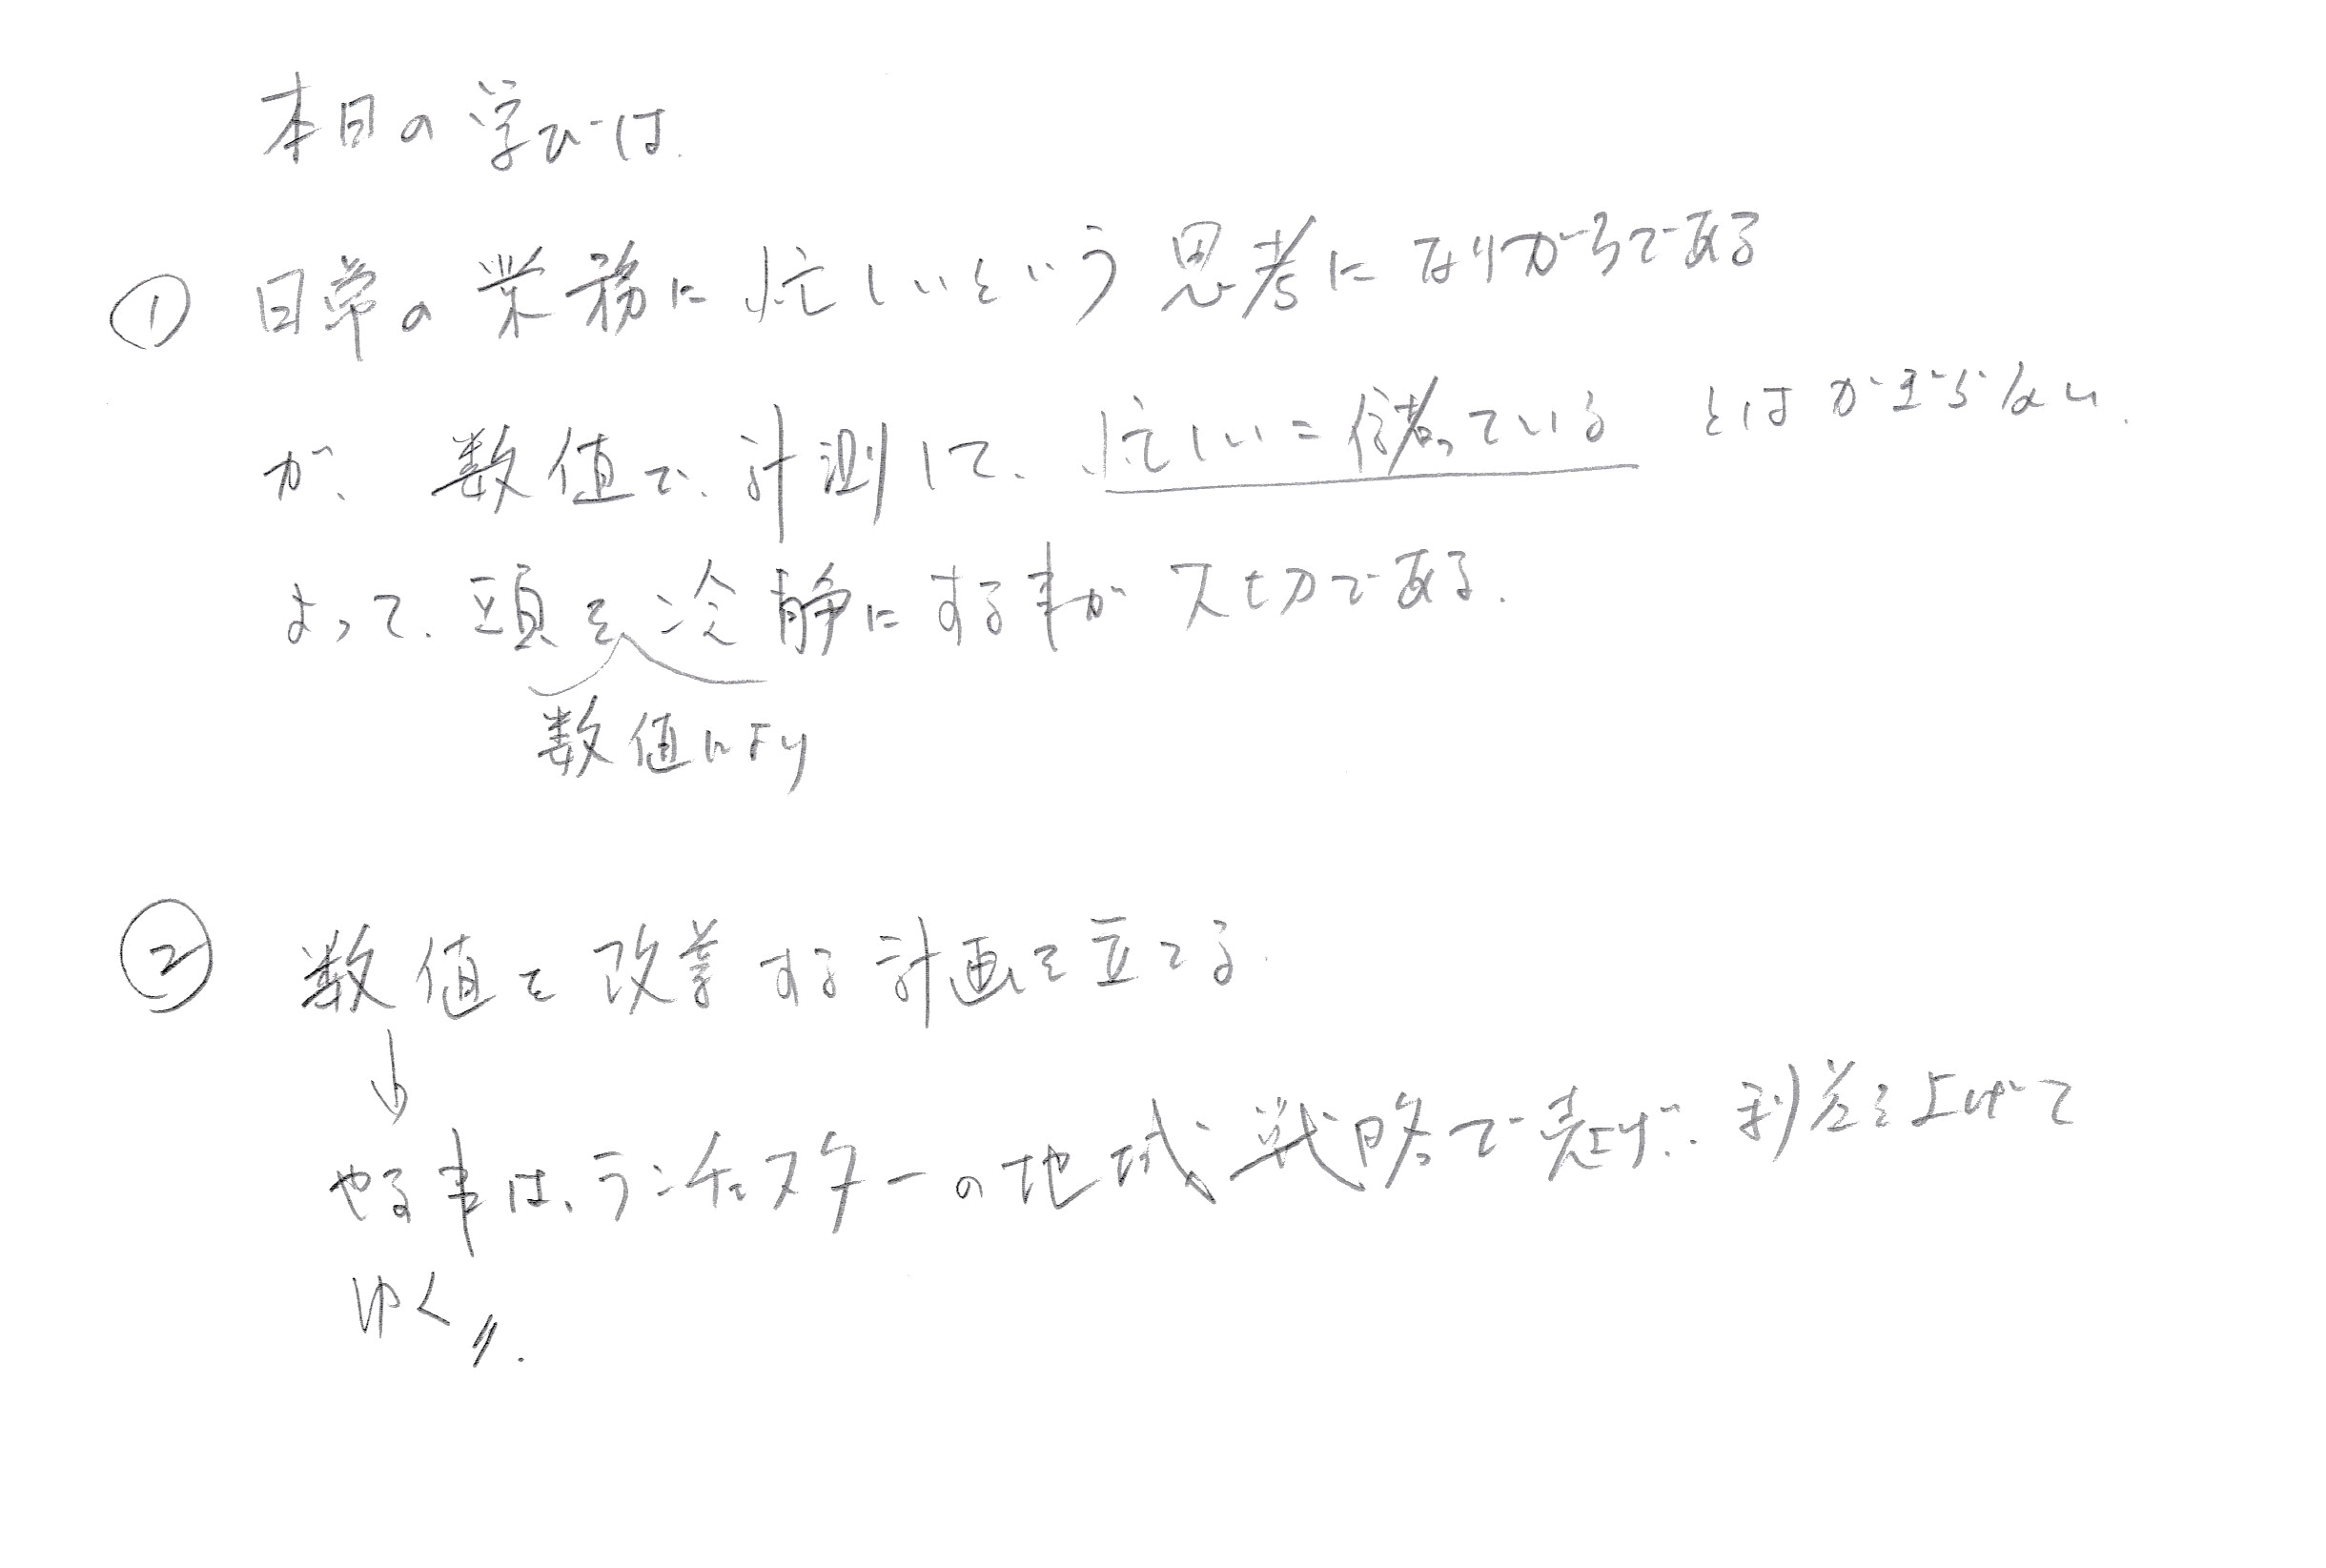 本日の学びは
① 日常の業務に忙しいという思考になりがちである
が、数値で、計測して、忙しい=儲っている とはかぎらない、
よって、頭を冷静にする事が大切である。
数値により
② 数値を改善する計画を立てる。
↓
やる事は、ランチェスターの地域戦略で 利益を上げて
ゆく〃.